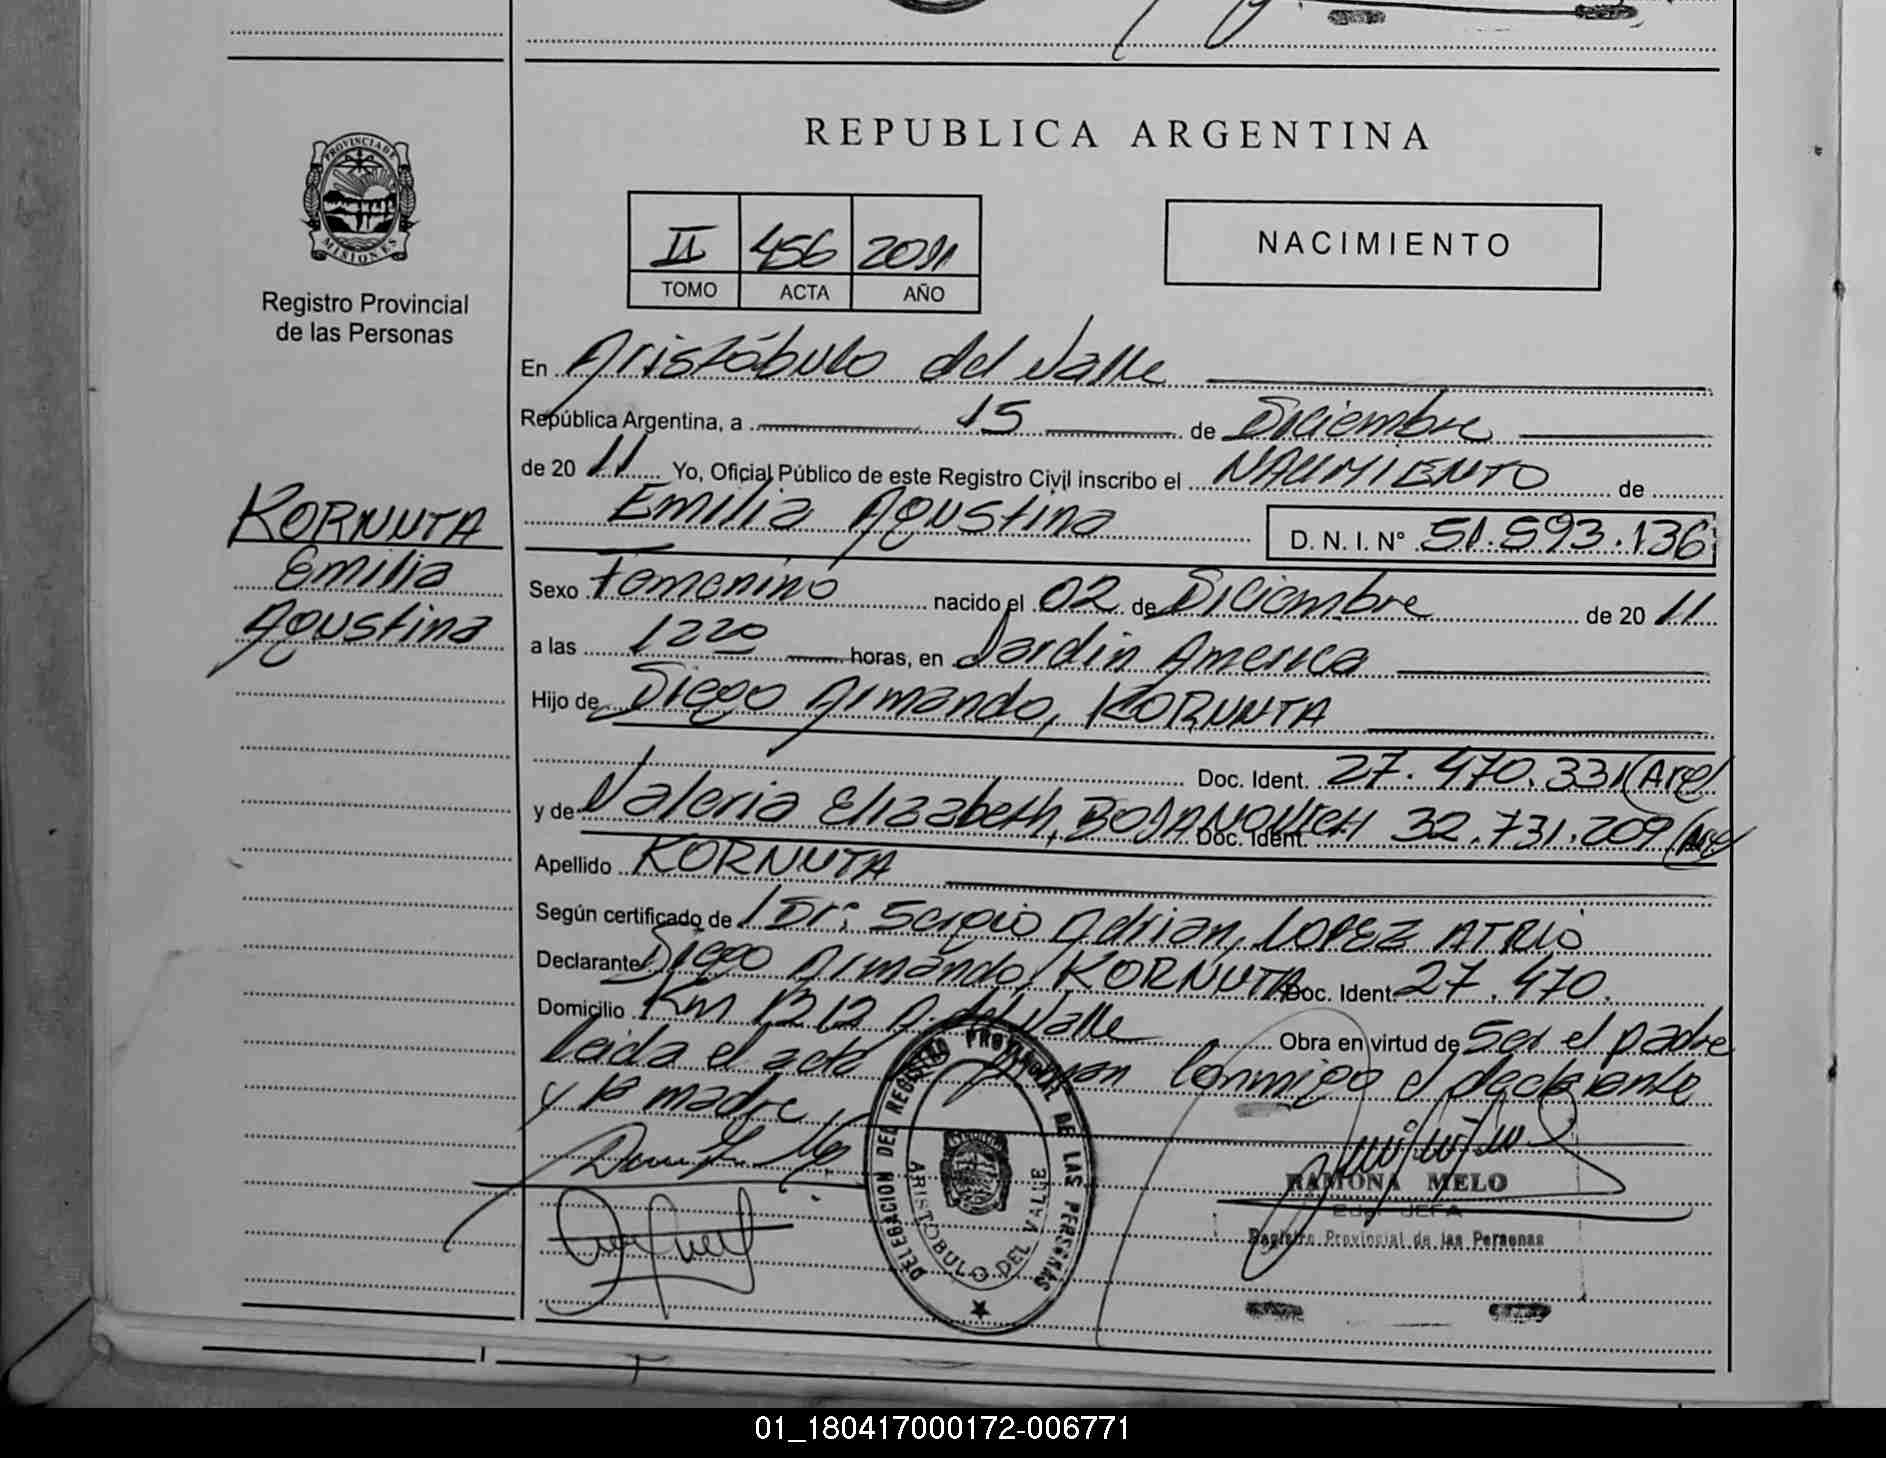 REPUBLICA ARGENTINA
PROVINCIA DE MISIONES
Registro Provincial
de las Personas
II 456 2011
TOMO ACTA AÑO
NACIMIENTO
En Aristóbulo del Valle
República Argentina, a 15 de Diciembre
de 20 11 Yo, Oficial Público de este Registro Civil inscribo el NACIMIENTO de
Emilia Agustina D. N. I. N° 51.593.136
KORNUTA
Emilia
Agustina
Sexo Femenino nacido el 02 de Diciembre de 20 11
a las 1220 horas, en Jardin America
Hijo de Diego Armando, KORNUTA
Doc. Ident. 27.470.331 (Arg)
y de Valeria Elizabeth, BOJANOVICH Doc. Ident. 32.731.209 (Arg)
Apellido KORNUTA
Según certificado de Dr: Sergio Adrian, LOPEZ ATRIO
Declarante Diego Armando, KORNUTA Doc. Ident 27.470.
Domicilio Km 1212 A. del Valle Obra en virtud de Ser el padre
Leida el acta conmigo el declarante
y la madre
DELEGACION DEL REGISTRO PROVINCIAL DE LAS PERSONAS
ARISTOBULO DEL VALLE
RAMONA MELO
JEFA
Registro Provincial de las Personas
01_180417000172-006771